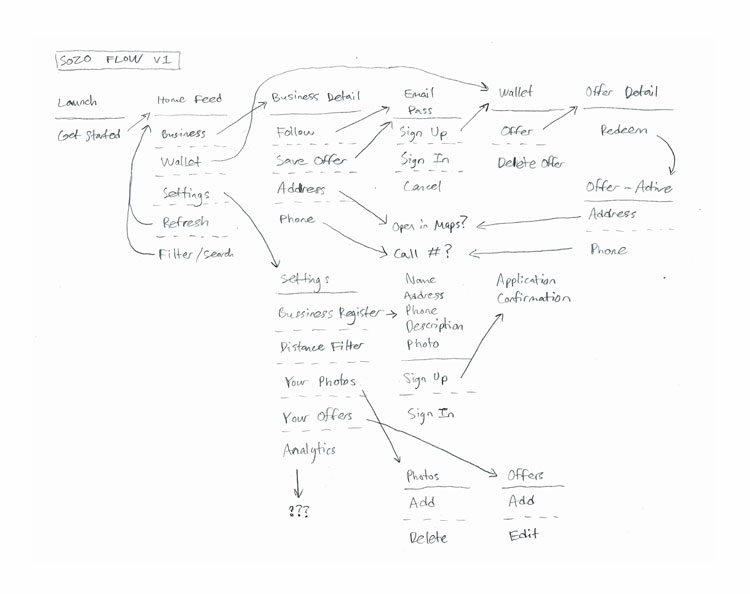 SOZO FLOW V1
Launch
Get Started
Home Feed
Business
Wallet
Settings
Refresh
Filter/Search
Business Detail
Follow
Save Offer
Address
Phone
Email
Pass
Sign Up
Sign In
Cancel
Wallet
Offer
Delete Offer
Offer Detail
Redeem
Offer - Active
Address
Phone
Open in Maps?
Call #?
Settings
Bussiness Register
Distance Filter
Your Photos
Your Offers
Analytics
???
Name
Address
Phone
Description
Photo
Sign Up
Sign In
Application
Confirmation
Photos
Add
Delete
Offers
Add
Edit